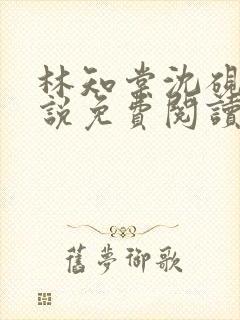 林知棠沈硯
說免費閱讀
舊夢御歌